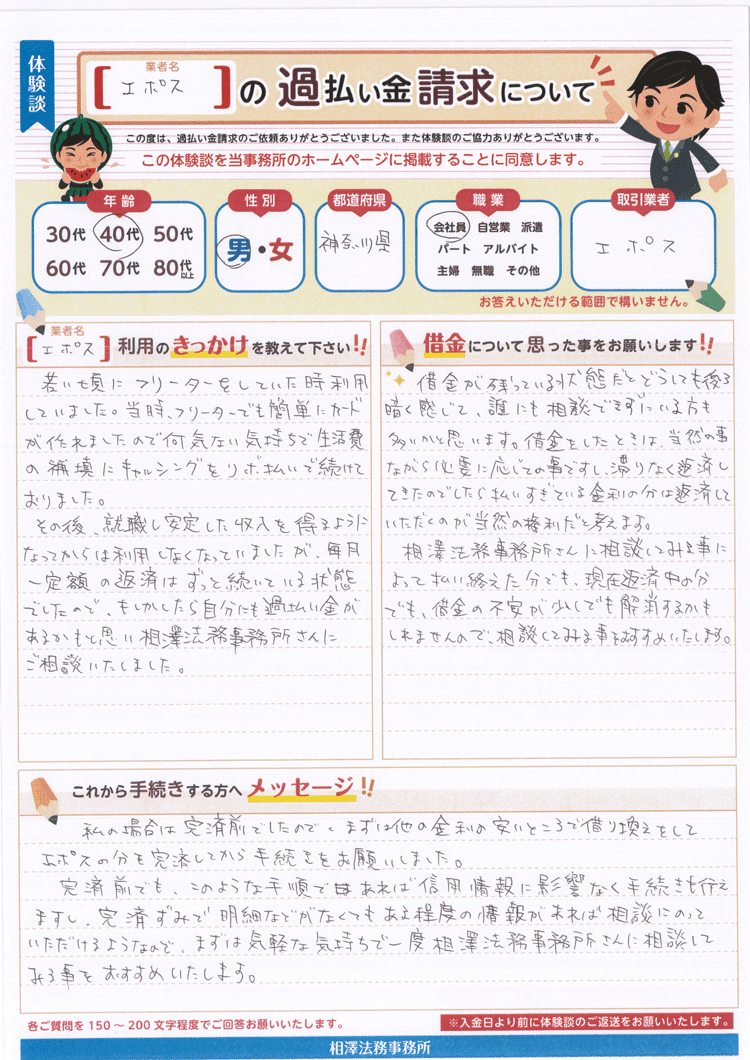 体験談
業者名
【エポス】の過払い金請求について
この度は、過払い金請求のご依頼ありがとうございました。また体験談のご協力ありがとうございます。
この体験談を当事務所のホームページに掲載することに同意します。
年齢
30代 40代 50代
60代 70代 80代以上
性別
男・女
都道府県
神奈川県
職業
会社員 自営業 派遣
パート アルバイト
主婦 無職 その他
取引業者
エポス
お答えいただける範囲で構いません。
業者名
【エポス】利用のきっかけを教えて下さい!!
若い頃にフリーターをしていた時利用
していました。当時、フリーターでも簡単にカード
が作れましたので何気ない気持ちで生活費
の補填にキャッシングをリボ払いで続けて
おりました。
その後、就職し安定した収入を得るように
なってからは利用しなくなっていましたが、毎月
一定額の返済はずっと続いている状態
でしたので、もしかしたら自分にも過払い金が
あるかもと思い相澤法務事務所さんに
ご相談いたしました。
借金について思った事をお願いします!!
借金が残っている状態だとどうしても後ろ
暗く感じて、誰にも相談できずにいる方も
多いかと思います。借金をしたときは、当然の事
ながら必要に応じての事ですし、滞りなく返済し
てきたのでしたら払いすぎている金利の分は返済して
いただくのが当然の権利だと考えます。
相澤法務事務所さんに相談してみる事に
よって払い終えた分でも、現在返済中の分
でも、借金の不安が少しでも解消するかも
しれませんので、相談してみる事をおすすめいたします。
これから手続きする方へメッセージ!!
私の場合は完済前でしたので、まずは他の金利の安いところで借り換えをして
エポスの分を完済してから手続きをお願いしました。
完済前でも、このような手順であれば信用情報に影響なく手続きも行え
ますし、完済ずみで明細などがなくてもある程度の情報があれば相談にのって
いただけるようなので、まずは気軽な気持ちで一度相澤法務事務所さんに相談して
みる事をおすすめいたします。
各ご質問を150〜200文字程度でご回答お願いいたします。
※入金日より前に体験談のご返送をお願いいたします。
相澤法務事務所